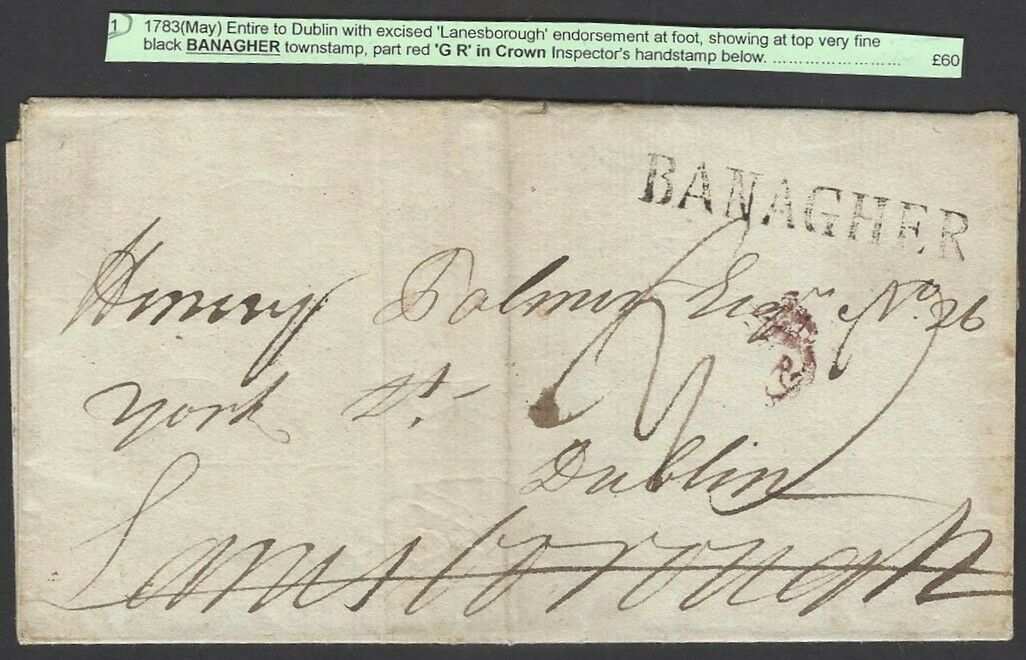 1 1783(May) Entire to Dublin with excised 'Lanesborough' endorsement at foot, showing at top very fine
black BANAGHER townstamp, part red 'G R' in Crown Inspector's handstamp below. ........................ £60
BANAGHER
Henery Palmer Esqr No. 26
R
York St.
Dublin
Lanesborough